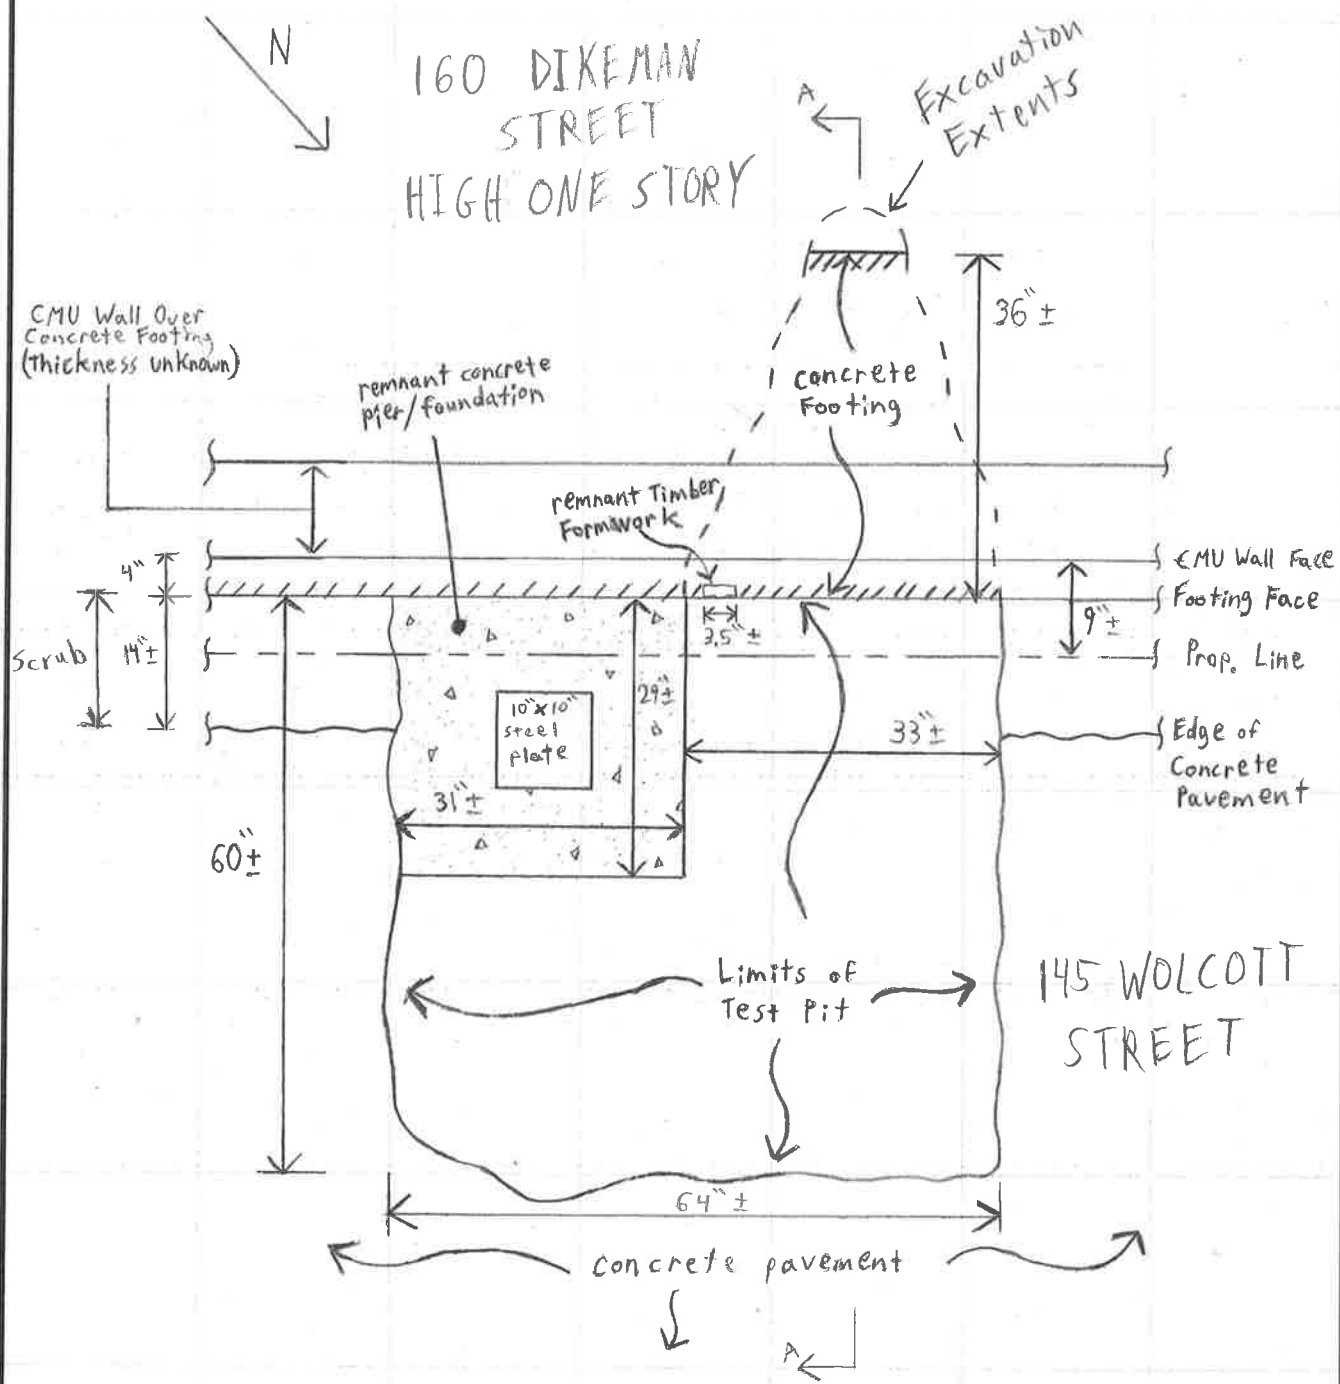 N
160 DIKEMAN
STREET
HIGH ONE STORY
A
Excavation
Extents
36"±
CMU Wall Over
Concrete Footing
(Thickness unknown)
remnant concrete
pier/foundation
concrete
Footing
remnant Timber
Formwork
4"
CMU Wall Face
Footing Face
9"±
3.5"±
Scrub
14"±
Prop. Line
29"±
10"x10"
steel
plate
33"±
Edge of
Concrete
Pavement
31"±
60"±
Limits of
Test Pit
145 WOLCOTT
STREET
64"±
concrete pavement
A